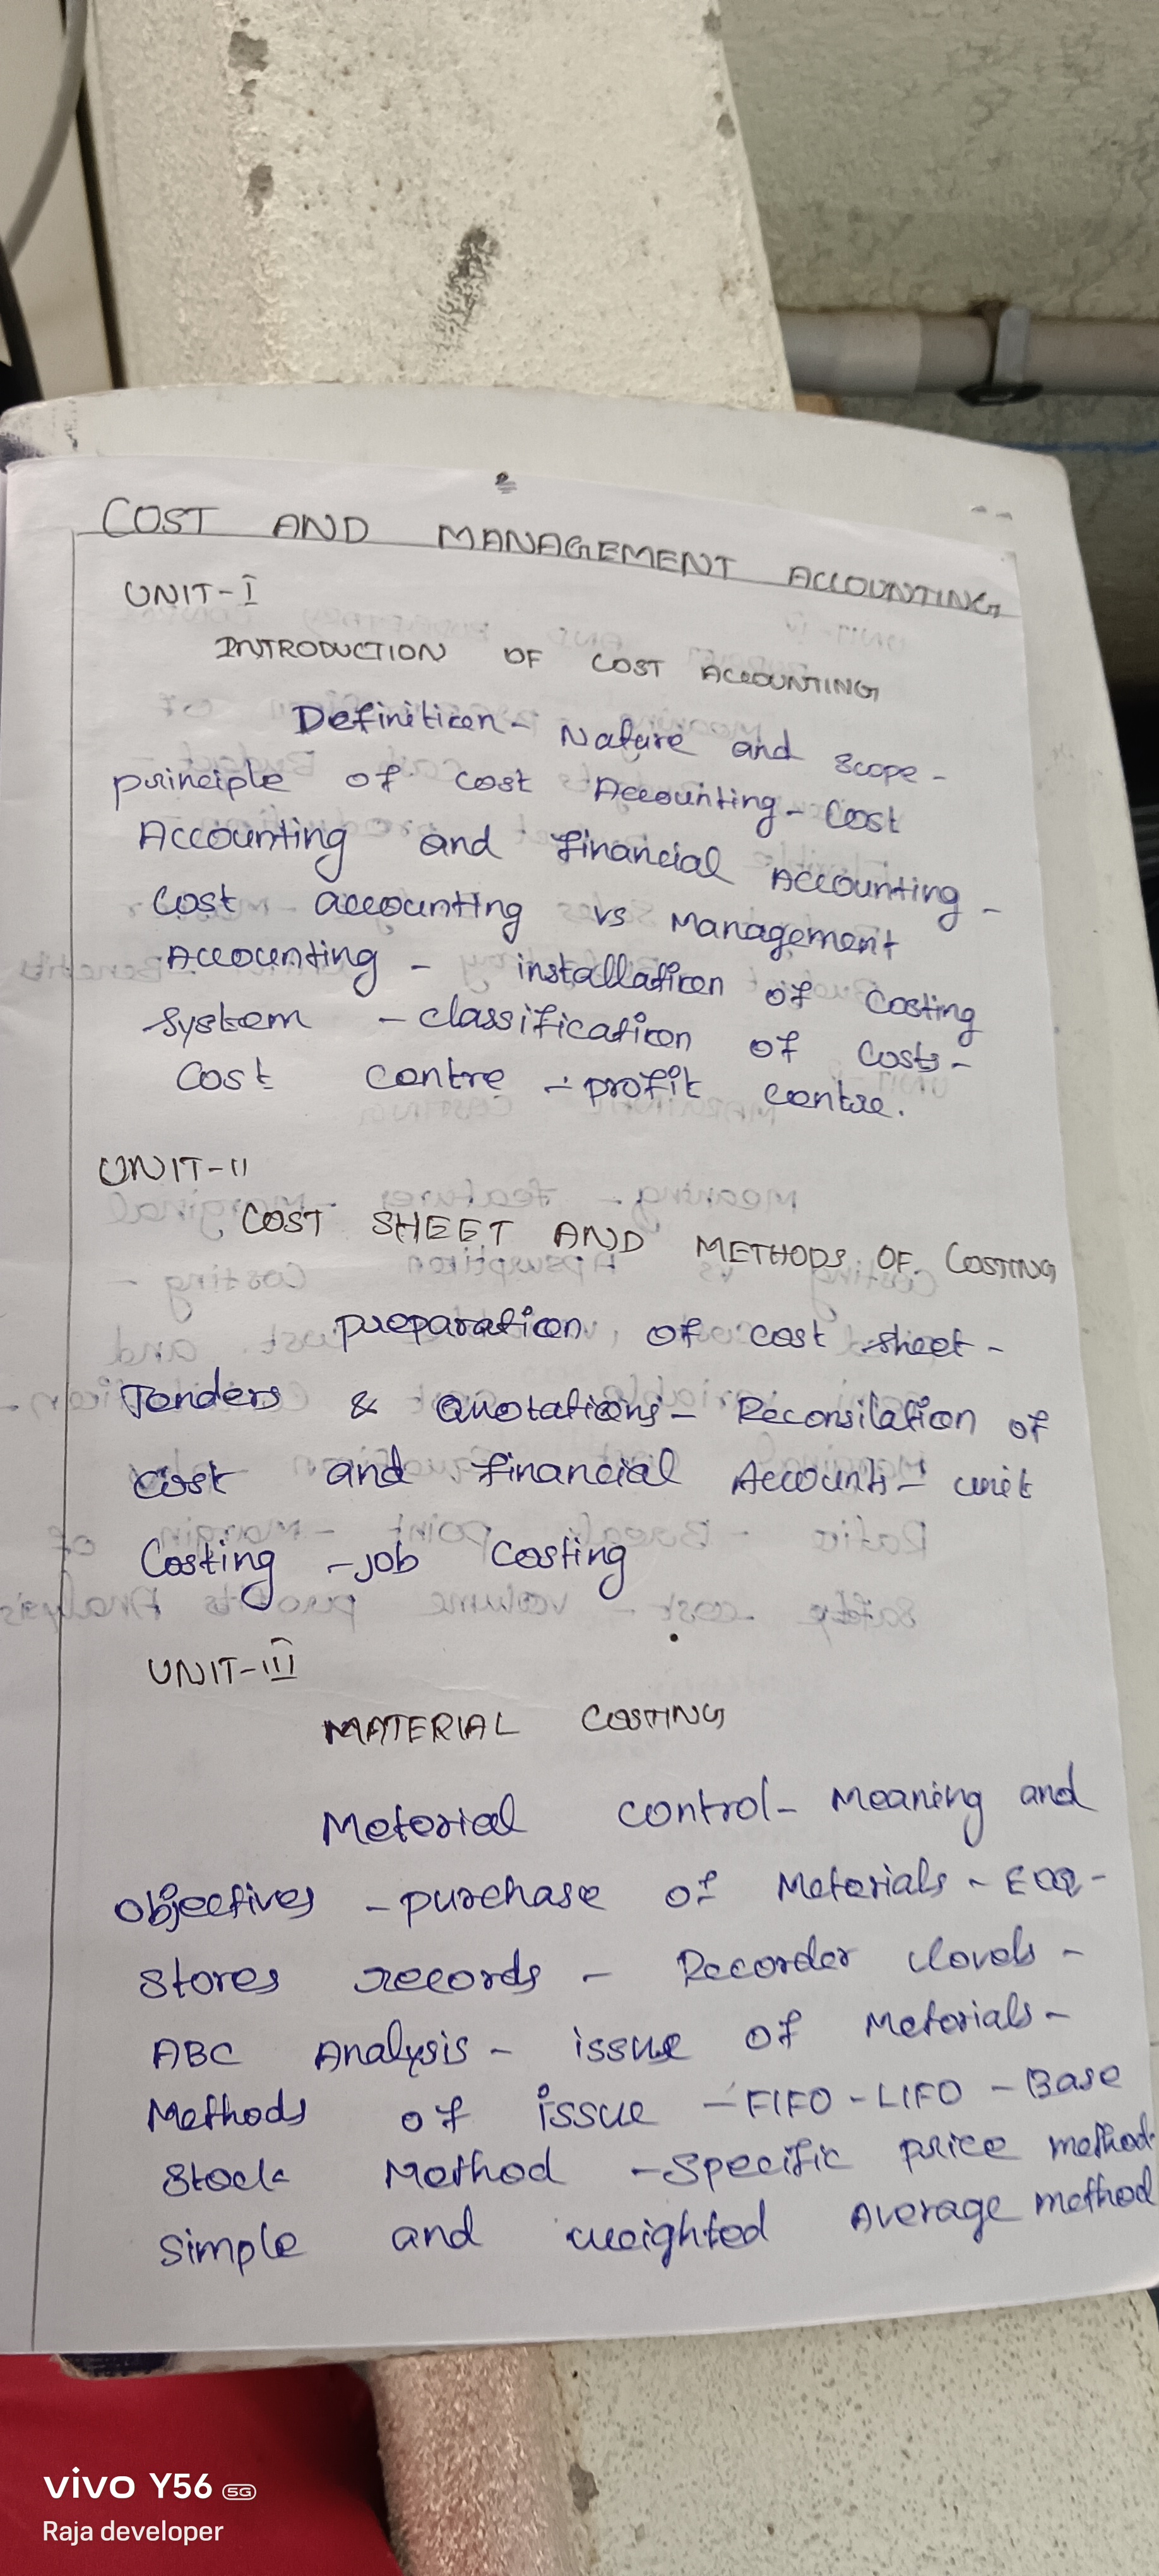 COST AND MANAGEMENT ACCOUNTING
UNIT-I
INTRODUCTION OF COST ACCOUNTING
Definition - Nature and Scope -
principle of cost Accounting - Cost
Accounting and Financial Accounting -
Cost accounting vs Management
Accounting - installation of Costing
System - classification of Costs -
Cost centre - profit centre.
UNIT-II
COST SHEET AND METHODS OF COSTING
preparation of cost sheet -
Tenders & Quotations - Reconsilation of
Cost and Financial Accounts - unit
Costing - job Costing
UNIT-III
MATERIAL COSTING
Meterial control - Meaning and
Objectives - purchase of Meterials - EOQ -
Stores records - Recorder levels -
ABC Analysis - issue of Meterials -
Methods of issue - FIFO - LIFO - Base
Stock Method - Specific price method
Simple and weighted Average method
vivo Y56 5G
Raja developer